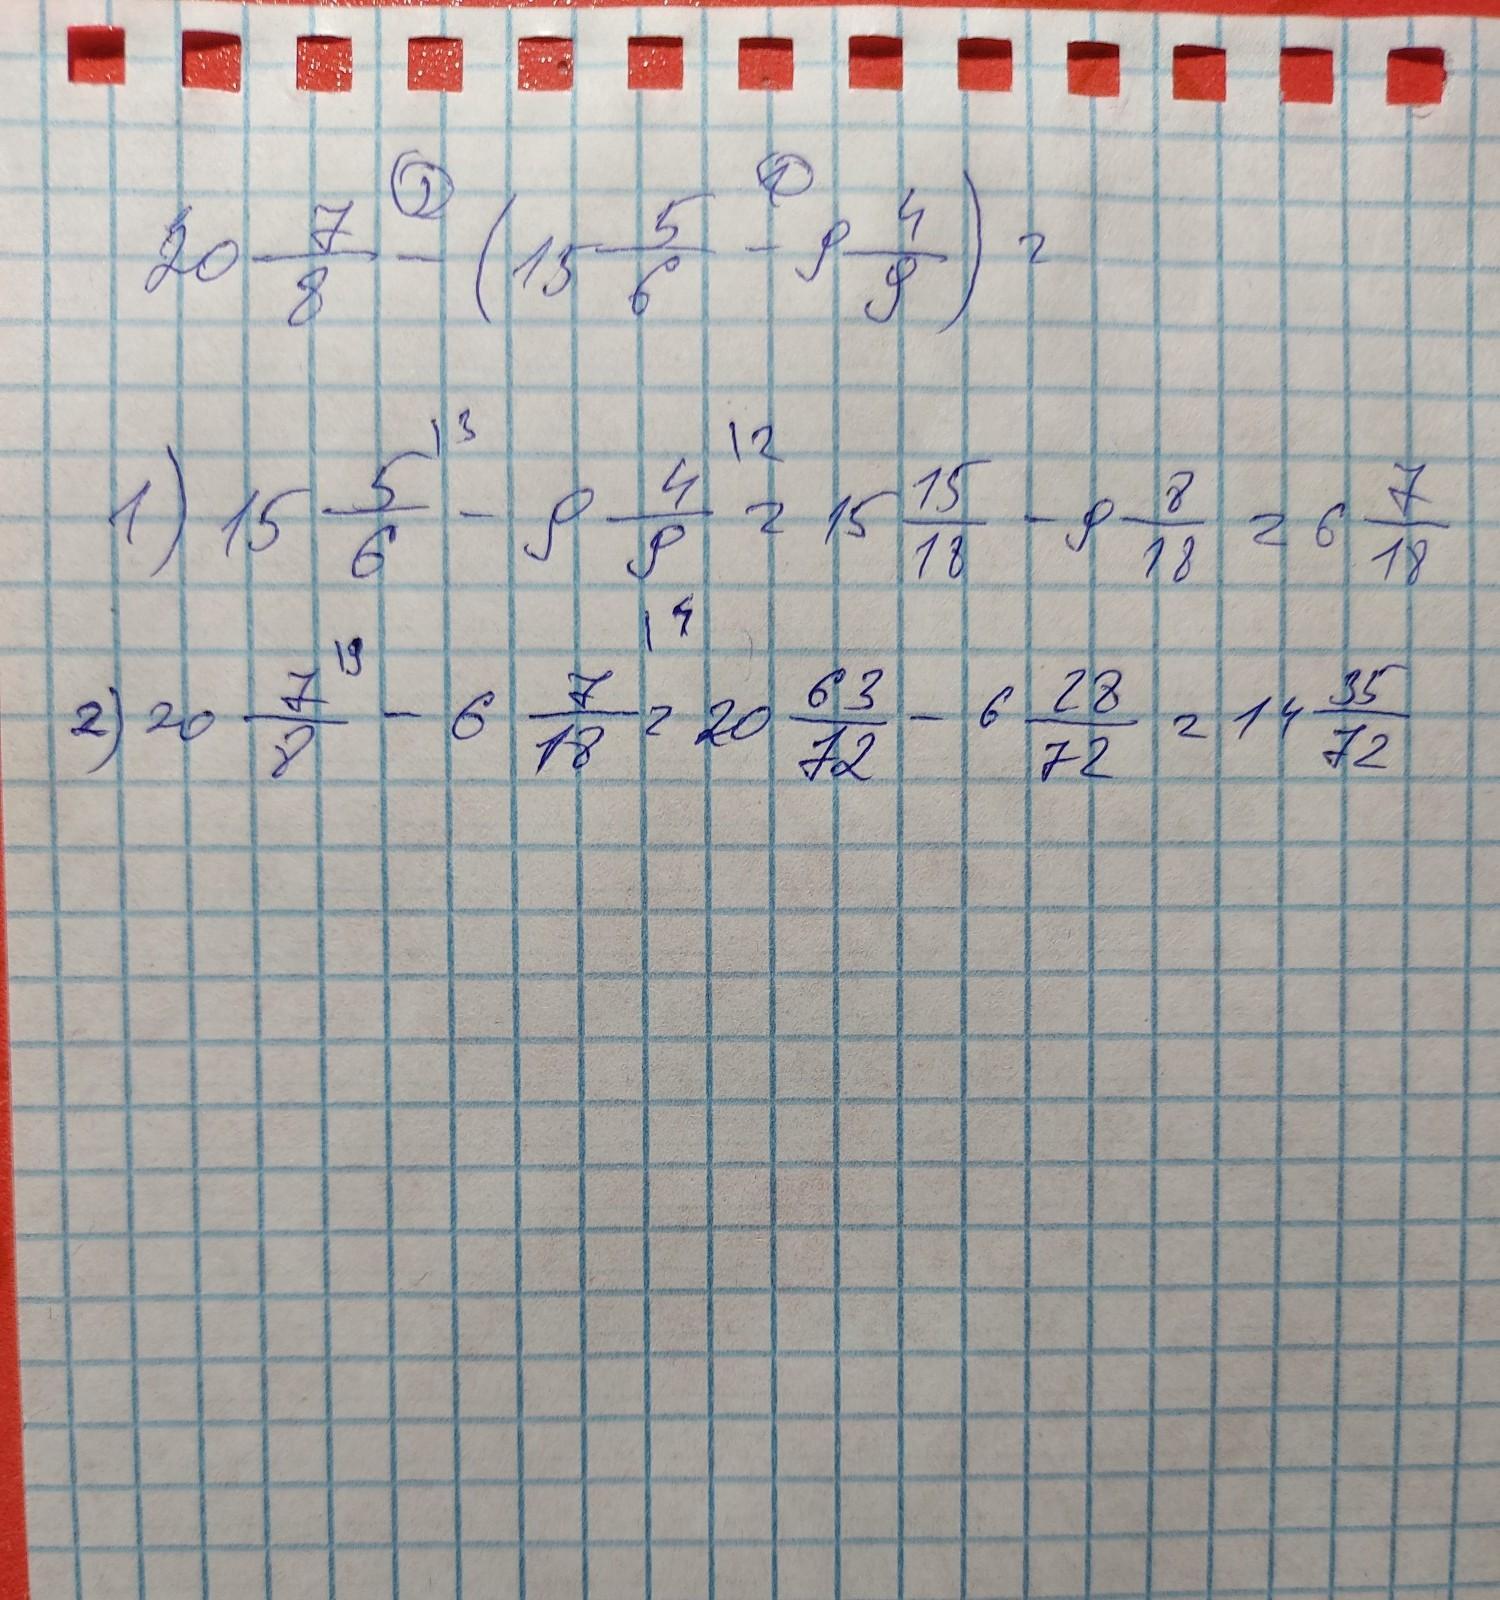 20 7/8 -② (15 5/6 -① 9 4/9) =
1) 15 5/6 |3 - 9 4/9 |2 = 15 15/18 - 9 8/18 = 6 7/18
2) 20 7/8 |9 - 6 7/18 |4 = 20 63/72 - 6 28/72 = 14 35/72